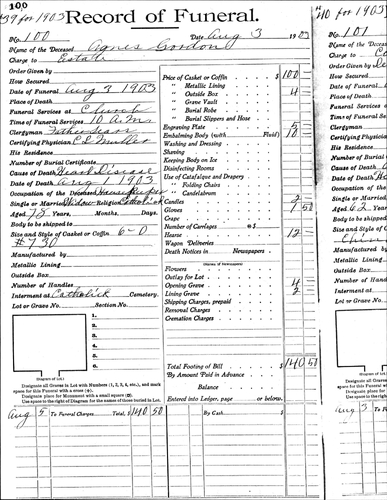 100
39 for 1903
Record of Funeral.
No. 100 Date Aug 3 1903
Name of the Deceased Agnes Gordon
Charge to Estate
Order Given by
How Secured
Date of Funeral Aug 3 1903
Place of Death
Funeral Services at Church
Time of Funeral Services 10 A.M.
Clergyman Father
Certifying Physician C E Muller
His Residence
Number of Burial Certificate
Cause of Death Heart Disease
Date of Death Aug 1 1903
Occupation of the Deceased House Keeper
Single or Married Widow Religion Catholick
Aged 75 Years, Months, Days.
Body to be shipped to
Size and Style of Casket or Coffin 6-0
#730
Manufactured by
Metallic Lining
Outside Box
Number of Handles
Interment at Catholick Cemetery.
Lot or Grave No. Section No.
1.
2.
3.
4.
5.
6.
(Diagram of Lot.)
Designate all Graves in Lot with Numbers (1, 2, 3, 4, etc.), and mark
space for this Funeral with a cross (+).
Designate place for Monument with a small square (□).
Use space to the right of Diagram for the names of those buried in Lot.
Price of Casket or Coffin $ 100
" Metallic Lining
" Outside Box 4
" Grave Vault
" Burial Robe
" Burial Slippers and Hose
Engraving Plate 5
Embalming Body (with Fluid) 10
Washing and Dressing
Shaving
Keeping Body on Ice
Disinfecting Rooms
Use of Catafalque and Drapery
" Folding Chairs
" Candelabrum
Candles 2
Gloves 1 50
Crape
Number of Carriages @ $
Hearse 12
Wagon Deliveries
Death Notices in Newspapers
(Names of Newspapers)
Flowers
Outlay for Lot
Opening Grave 4
Lining Grave 2
Shipping Charges, prepaid
Removal Charges
Cremation Charges
Total Footing of Bill $ 140 50
By Amount Paid in Advance
Balance
Entered into Ledger, page or below.
Aug 5 To Funeral Charges Total, $ 140 50 By Cash $
40 for 1903
No. 101
Name of the Deceased
Charge to
Order Given by
How Secured
Date of Funeral
Place of Death
Funeral Services
Time of Funeral
Clergyman
Certifying Physician
His Residence
Number of Burial
Cause of Death
Date of Death
Occupation of the
Single or Married
Aged 62 Years
Body to be shipped
Size and Style of
Manufactured by
Metallic Lining
Outside Box
Number of Handles
Interment at
Lot or Grave No.
(Diagram of
Designate all Graves
space for this Funeral
Designate place for
Use space to the right
Aug 3 To